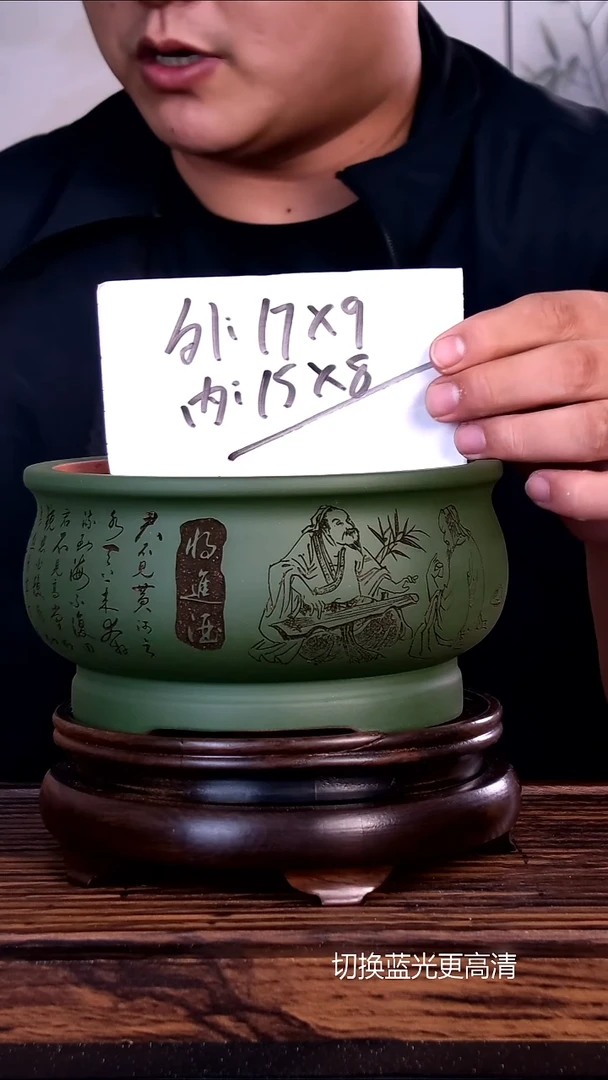 外: 17×9
内: 15×8
将進酒
君不見黄河之
水天上来奔
流到海不復回
君不見高堂明
切换蓝光更高清